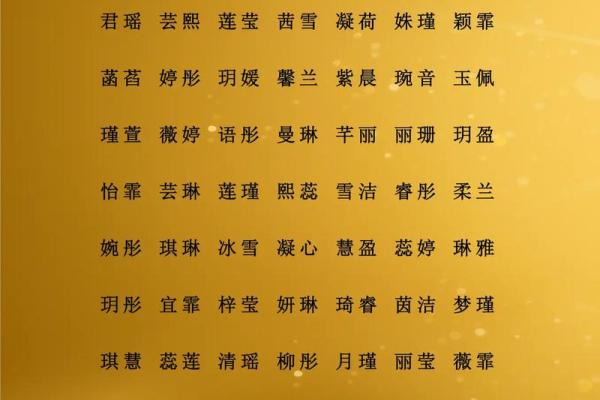 君瑶 芸熙 莲莹 茜雪 凝荷 姝瑾 颖霏
菡萏 婷彤 玥媛 馨兰 紫晨 琬音 玉佩
瑾萱 薇婷 语彤 曼琳 芊丽 丽珊 玥盈
怡霏 芸琳 莲瑾 熙蕊 雪洁 睿彤 柔兰
婉彤 琪琳 冰雪 凝心 慧盈 蕊婷 琳雅
玥彤 宜霏 梓莹 妍琳 琦睿 茵洁 梦瑾
琪慧 蕊莲 清瑶 柳彤 月瑾 丽莹 薇霏